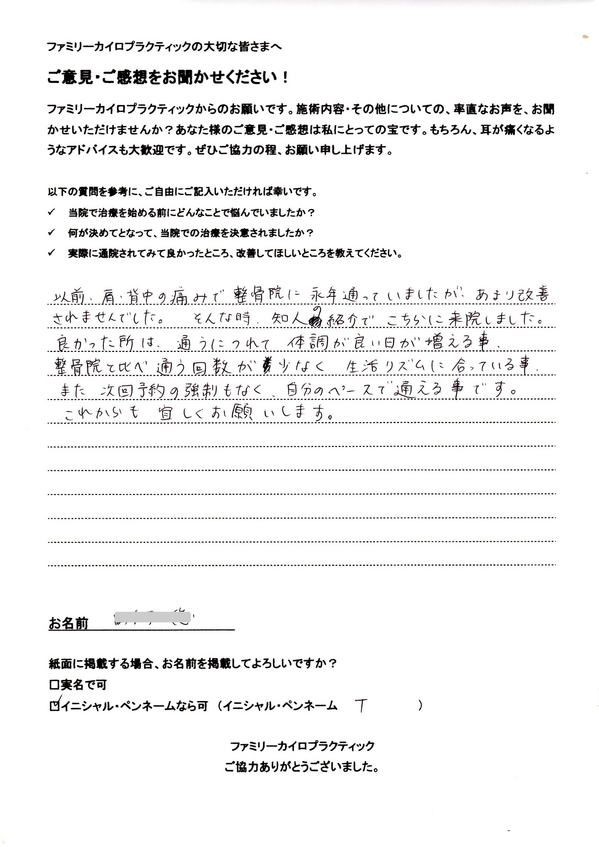 ファミリーカイロプラクティックの大切な皆さまへ
ご意見・ご感想をお聞かせください！
ファミリーカイロプラクティックからのお願いです。施術内容・その他についての、率直なお声を、お聞
かせいただけませんか？あなた様のご意見・ご感想は私にとっての宝です。もちろん、耳が痛くなるよ
うなアドバイスも大歓迎です。ぜひご協力の程、お願い申し上げます。
以下の質問を参考に、ご自由にご記入いただければ幸いです。
✓ 当院で治療を始める前にどんなことで悩んでいましたか？
✓ 何が決めてとなって、当院での治療を決意されましたか？
✓ 実際に通院されてみて良かったところ、改善してほしいところを教えてください。
以前、肩・背中の痛みで整骨院に永年通っていましたが、あまり改善
されませんでした。 そんな時、知人の紹介でこちらに来院しました。
良かった所は、通うにつれて 体調が良い日が増える事、
整骨院と比べ通う回数が少なく 生活リズムに合っている事、
また次回予約の強制もなく、自分のペースで通える事です。
これからも宜しくお願いします。
お名前
紙面に掲載する場合、お名前を掲載してよろしいですか？
□実名で可
☑イニシャル・ペンネームなら可 （イニシャル・ペンネーム T ）
ファミリーカイロプラクティック
ご協力ありがとうございました。